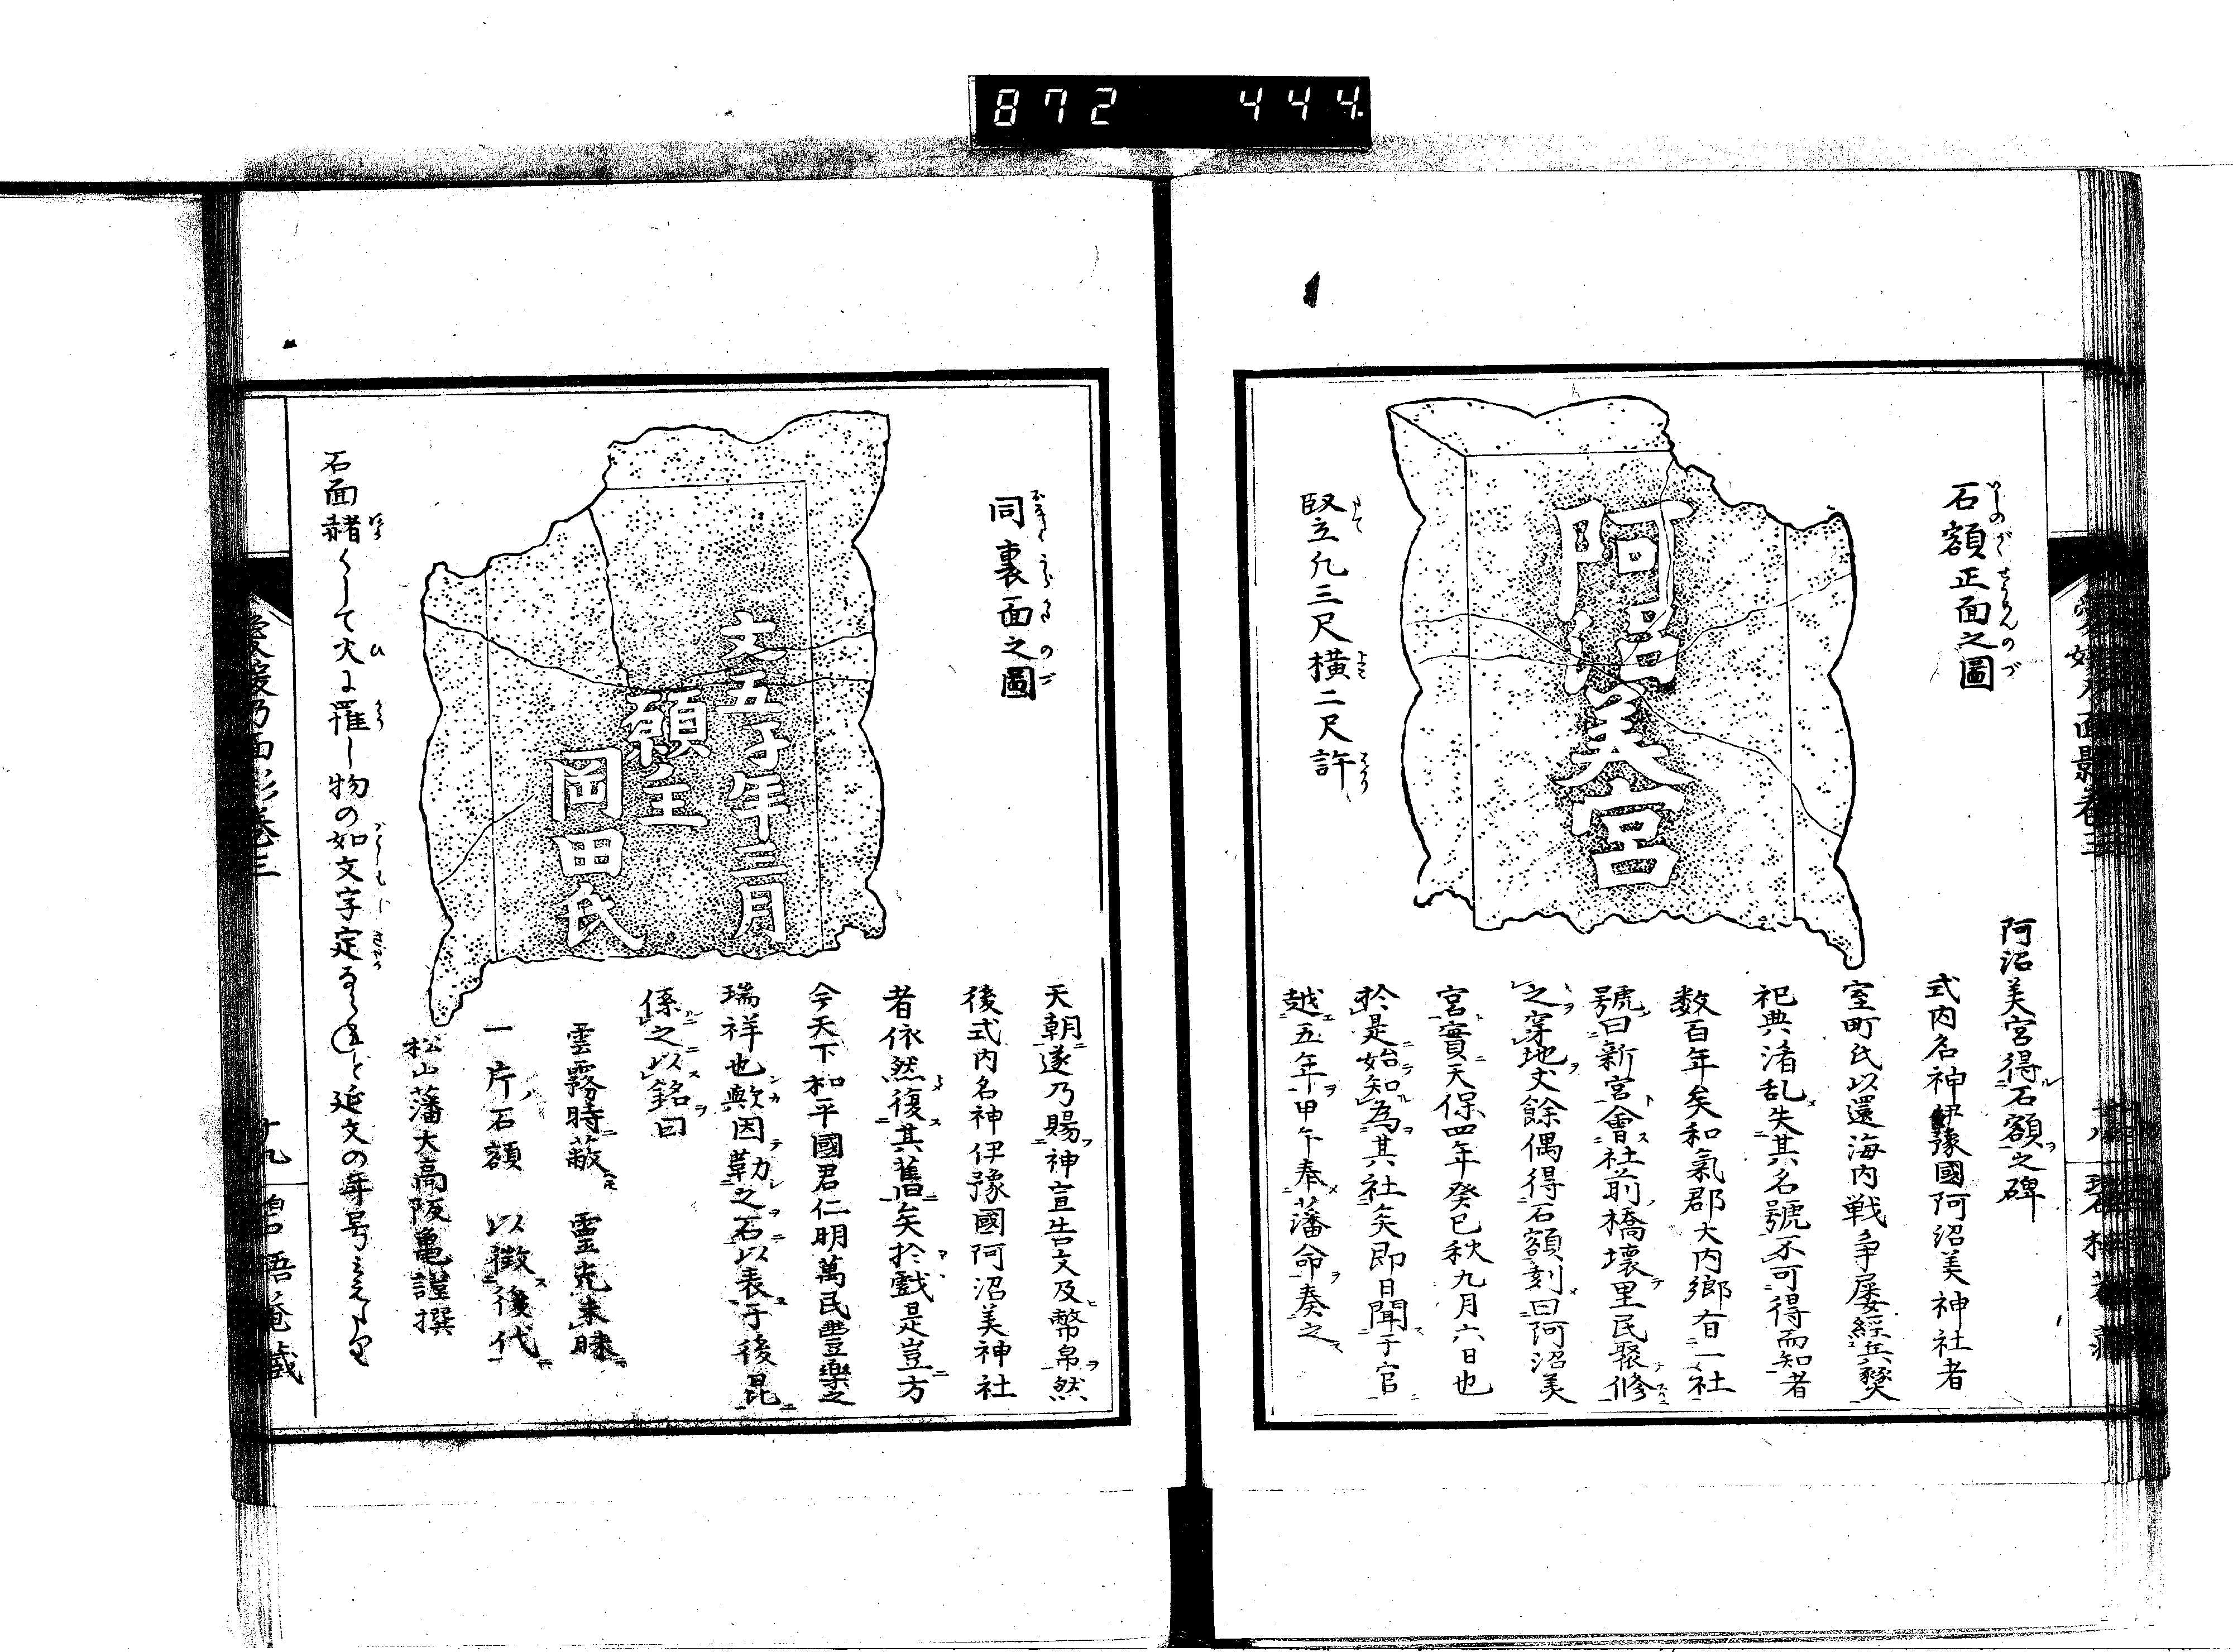 872 444
石額正面之圖
阿沼美宮
竪凡三尺横二尺許
阿沼美宮得石額之碑
式内名神伊豫國阿沼美神社者
室町氏以還海内戦争屡經兵燹
祀典渚乱失其名號不可得而知者
数百年矣和氣郡大内郷有一社
號曰新宮會社前橋壊里民聚修
之穿地丈餘偶得石額刻曰阿沼美
宮實天保四年癸巳秋九月六日也
於是始知為其社矣即日聞于官
越五年甲午奉藩命奏之
同裏面之圖
文五子年三月
願主
岡田氏
天朝遂乃賜神宣告文及幣帛然
後式内名神伊豫國阿沼美神社
者依然復其舊矣於戲是豈方
今天下和平國君仁明萬民豊樂之
瑞祥也歟因勒之石以表于後昆
係之以銘曰
雲霧時蔽 霊光未昧
一片石額 以徴後代
松山藩大高阪亀謹撰
石面赭くして火に罹し物の如文字定
延文の年号
愛媛乃面影巻三
十九